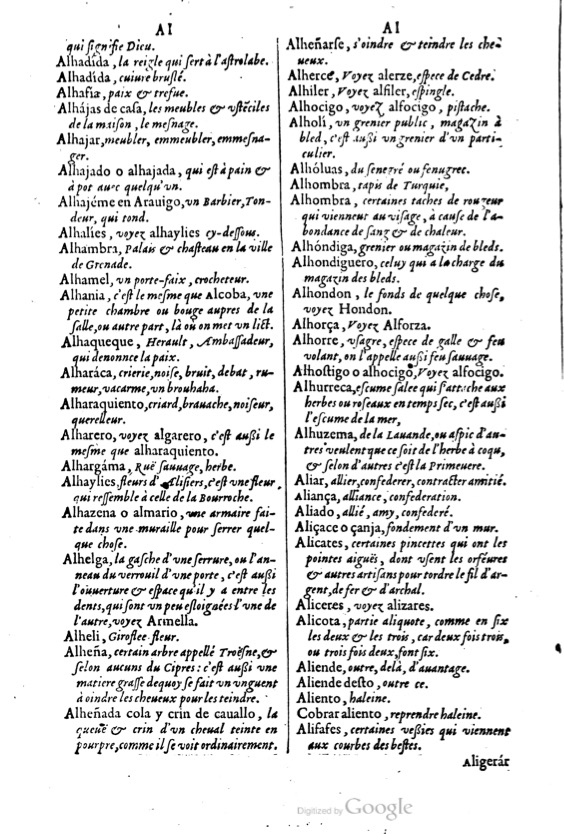 AI
qui signifie Dieu.
Alhadída, la reigle qui sert à l'astrolabe.
Alhadída, cuiure bruslé.
Alhafia, paix & trefue.
Alhájas de casa, les meubles & vstéciles
de la maison, le mesnage.
Alhajar, meubler, emmeubler, emmesna-
ger.
Alhajado o alhajada, qui est à pain &
à pot auec quelqu'vn.
Alhajéme en Arauigo, vn Barbier, Ton-
deur, qui tond.
Alhalíes, voyez alhaylies cy-dessous.
Alhambra, Palais & chasteau en la ville
de Grenade.
Alhamel, vn porte-faix, crocheteur.
Alhania, c'est le mesme que Alcoba, vne
petite chambre ou bouge aupres de la
salle, ou autre part, là où on met vn lict.
Alhaqueque, Herault, Ambassadeur,
qui denonnce la paix.
Alharáca, crierie, noise, bruit, debat, ru-
meur, vacarme, vn brouhaba.
Alharaquiento, criard, brauache, noiseur,
querelleur.
Alharero, voyez algarero, c'est außi le
mesme que alharaquiento.
Alhargáma, Ruë sauuage, herbe.
Alhaylies fleurs d'Alisiers, c'est vne fleur
qui ressemble à celle de la Bourroche.
Alhazena o almario, vne armaire fai-
te dans vne muraille pour serrer quel-
que chose.
Alhelga, la gasche d'vne serrure, ou l'an-
neau du verrouil d'vne porte, c'est außi
l'ouuerture & espace qu'il y a entre les
dents, qui sont vn peu esloignées l'vne de
l'autre, voyez Armella.
Alheli, Giroflee fleur.
Alheña, certain arbre appellé Troësne, &
selon aucuns du Cipres : c'est außi vne
matiere grasse dequoy se fait vn vnguent
à oindre les cheueux pour les teindre.
Alheñada cola y crin de cauallo, la
queuë & crin d'vn cheual teinte en
pourpre, comme il se voit ordinairement.
AI
Alheñarse, s'oindre & teindre les che-
ueux.
Alherce, Voyez alerze, espece de Cedre.
Alhiler, Voyez alfiler, espingle.
Alhocigo, voyez alfocigo, pistache.
Alholi, vn grenier public, magazin à
bled, c'est außi vn grenier d'vn parti-
culier.
Alhóluas, du senegré ou fenugrec.
Alhombra, tapis de Turquie,
Alhombra, certaines taches de rougeur
qui viennent au visage, à cause de l'a-
bondance de sang & de chaleur.
Alhóndiga, grenier ou magazin de bleds.
Alhondiguero, celuy qui a la charge du
magazin des bleds.
Alhondon, le fonds de quelque chose,
voyez Hondon.
Alhorça, Voyez Alforza.
Alhorre, vsagre, espece de galle & feu
volant, on l'appelle außi feu sauuage.
Alhostigo o alhocigo, Voyez alfocigo.
Alhurreca, escume salee qui s'attache aux
herbes ou roseaux en temps sec, c'est außi
l'escume de la mer,
Alhuzema, de la Lauande, ou aspic d'au-
tres veulent que ce soit de l'herbe à coqu,
& selon d'autres c'est la Primeuere.
Aliar, allier, confederer, contracter amitié.
Aliança, alliance, confederation.
Aliado, allié, amy, confederé.
Aliçace o çanja, fondement d'vn mur.
Alicates, certaines pincettes qui ont les
pointes aiguës, dont vsent les orféures
& autres artisans pour tordre le fil d'ar-
gent, de fer & d'archal.
Aliceres, voyez alizares.
Alicota, partie aliquote, comme en six
les deux & les trois, car deux fois trois,
ou trois fois deux, font six.
Aliende, outre, delà, d'auantage.
Aliende desto, outre ce.
Aliento, haleine.
Cobrar aliento, reprendre haleine.
Alifafes, certaines veßies qui viennent
aux courbes des bestes.
Aligerár
Digitized by Google